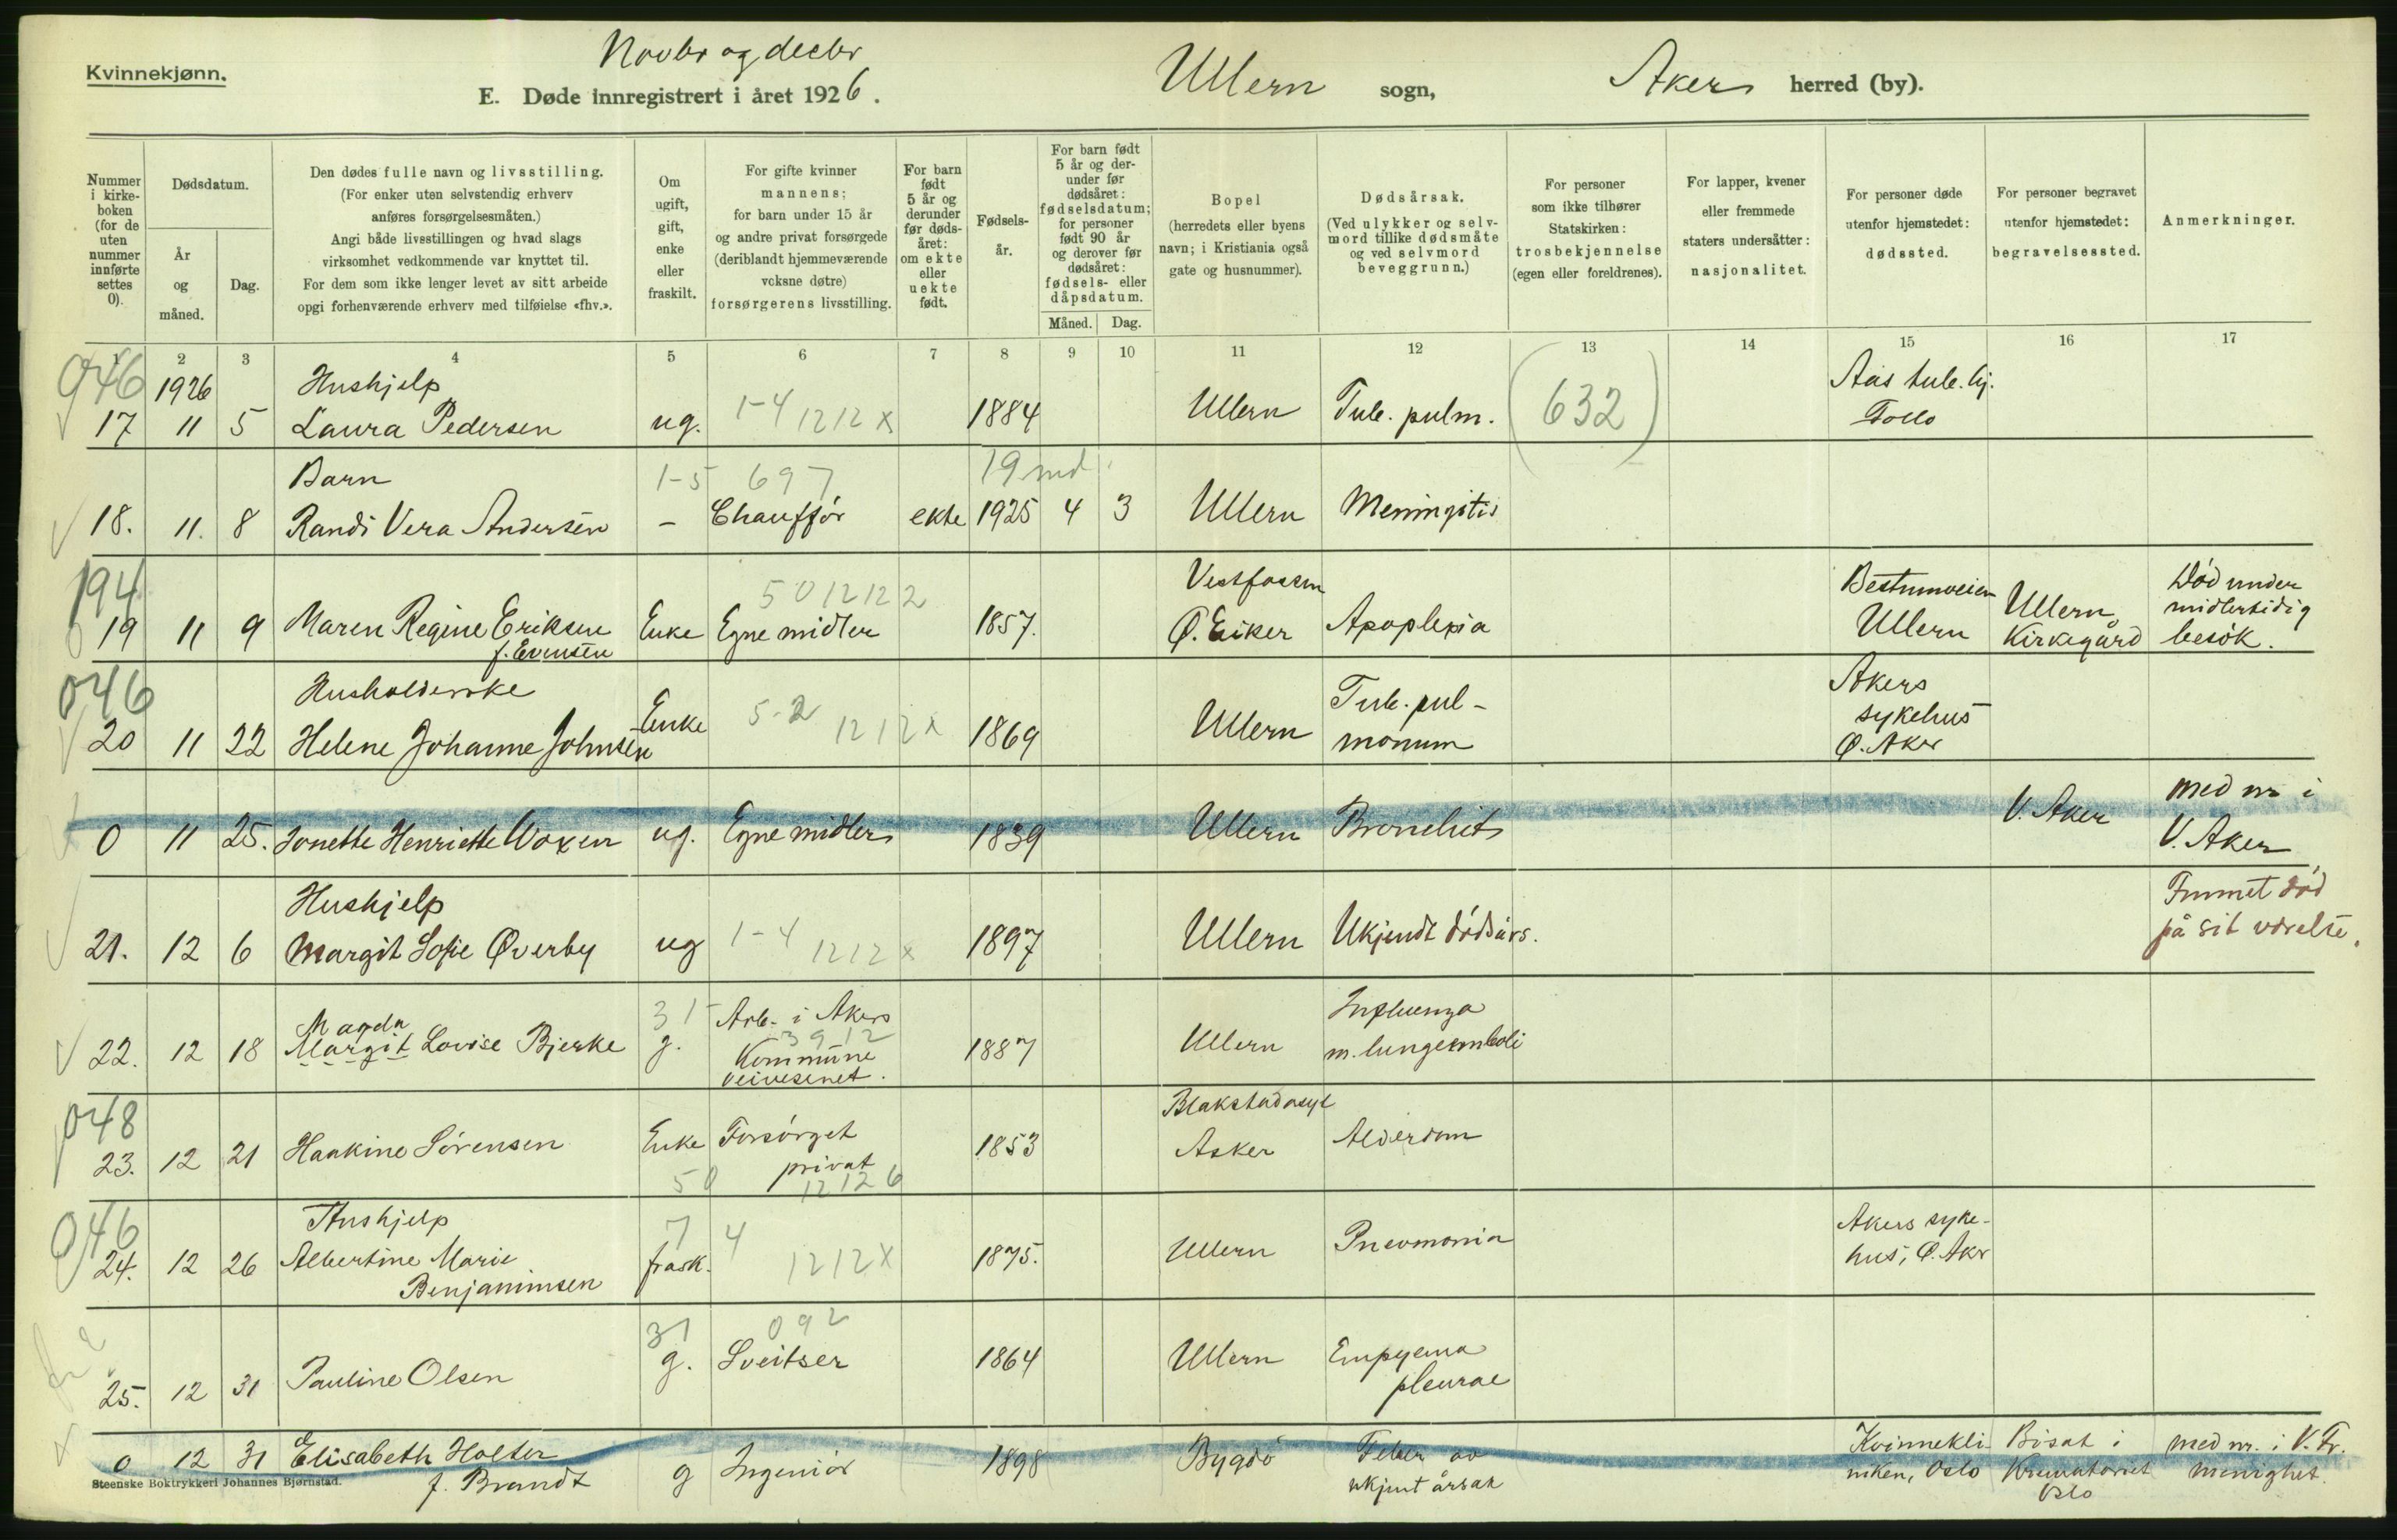 Kvinnekjønn.
Novbr og decbr
E. Døde innregistrert i året 1926.
Ullern sogn,
Aker herred (by).
Nummer i kirke-boken (for de uten nummer innførte settes 0).
Dødsdatum.
År og måned.
Dag.
Den dødes fulle navn og livsstilling.
(For enker uten selvstendig erhverv
anføres forsørgelsesmåten.)
Angi både livsstillingen og hvad slags
virksomhet vedkommende var knyttet til.
For dem som ikke lenger levet av sitt arbeide
opgi forhenværende erhverv med tilføielse «fhv.».
Om ugift, gift, enke eller fraskilt.
For gifte kvinner
mannens;
for barn under 15 år
og andre privat forsørgede
(deriblandt hjemmeværende
voksne døtre)
forsørgerens livsstilling.
For barn født 5 år og derunder før døds-året: om ekte eller uekte født.
Fødsels-år.
For barn født 5 år og der-under før dødsåret: fødselsdatum; for personer født 90 år og derover før dødsåret: fødsels- eller dåpsdatum.
Måned. Dag.
Bopel
(herredets eller byens
navn; i Kristiania også
gate og husnummer).
Dødsårsak.
(Ved ulykker og selv-
mord tillike dødsmåte
og ved selvmord
beveggrunn.)
For personer
som ikke tilhører
Statskirken:
trosbekjennelse
(egen eller foreldrenes).
For lapper, kvener
eller fremmede
staters undersåtter:
nasjonalitet.
For personer døde
utenfor hjemstedet:
dødssted.
For personer begravet
utenfor hjemstedet:
begravelsessted.
Anmerkninger.
1 2 3 4 5 6 7 8 9 10 11 12 13 14 15 16 17
046 1926 Hushjelp Aas tub. hj.
17 11 5 Laura Pedersen ug. 1-4 1212 x 1884 Ullern Tub. pulm. (632) Follo
Barn 1-5 697 19 md
18. 11. 8 Randi Vera Andersen - Chauffør ekte 1925 4 3 Ullern Meningitis
194 501212 2 Vestfossen Død under
19 11 9 Maren Regine Eriksen Enke Egne midler 1857. Ø. Eiker Apoplexia Ullern Ullern Kirkegård midlertidig
f. Evensen besøk.
046 Husholderske Tub. pul- Akers
20 11 22 Helene Johanne Johnsen Enke 5-2 1212 x 1869 Ullern monum sykehus
Ø. Aker
0 11 25. Jonette Henriette Woxen ug. Egne midler 1839 Ullern Bronchit V. Aker med nr i
V. Aker
Hushjelp Funnet død
21. 12 6 Margit Sofie Øverby ug 1-4 1212 x 1897 Ullern Ukjendt dødsårs. på sit værelse.
Magda 31 Arb. i Akers Influenza
22. 12 18 Margit Lovise Bjerke g. 3912 Kommune 1887 Ullern m. lungeemboli
veivesenet.
048 Blakstad asyl
23. 12 21 Haakine Sørensen Enke Forsørget 1853 Asker Alderdom
50 privat 12126
046 Hushjelp 7 4 Akers syke-
24. 12 26 Albertine Marie frask. 1212 X 1875. Ullern Pneumonia hus, Ø. Aker
Benjaminsen
31 092
25. 12 31 Pauline Olsen g. Sveitser 1864 Ullern Empyema
pleurae
0 12 31 Elisabeth Holter g Ingeniør 1898 Bygdø Feber av Kvinnekli- Bisat i med nr. i V. Fr.
f. Brandt ukjent årsak niken, Oslo Krematoriet menighet.
Oslo
Steenske Boktrykkeri Johannes Bjørnstad.